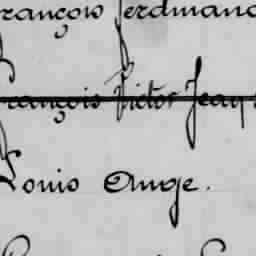 François Ferdinand
François Victor Jean
Louis Ange.